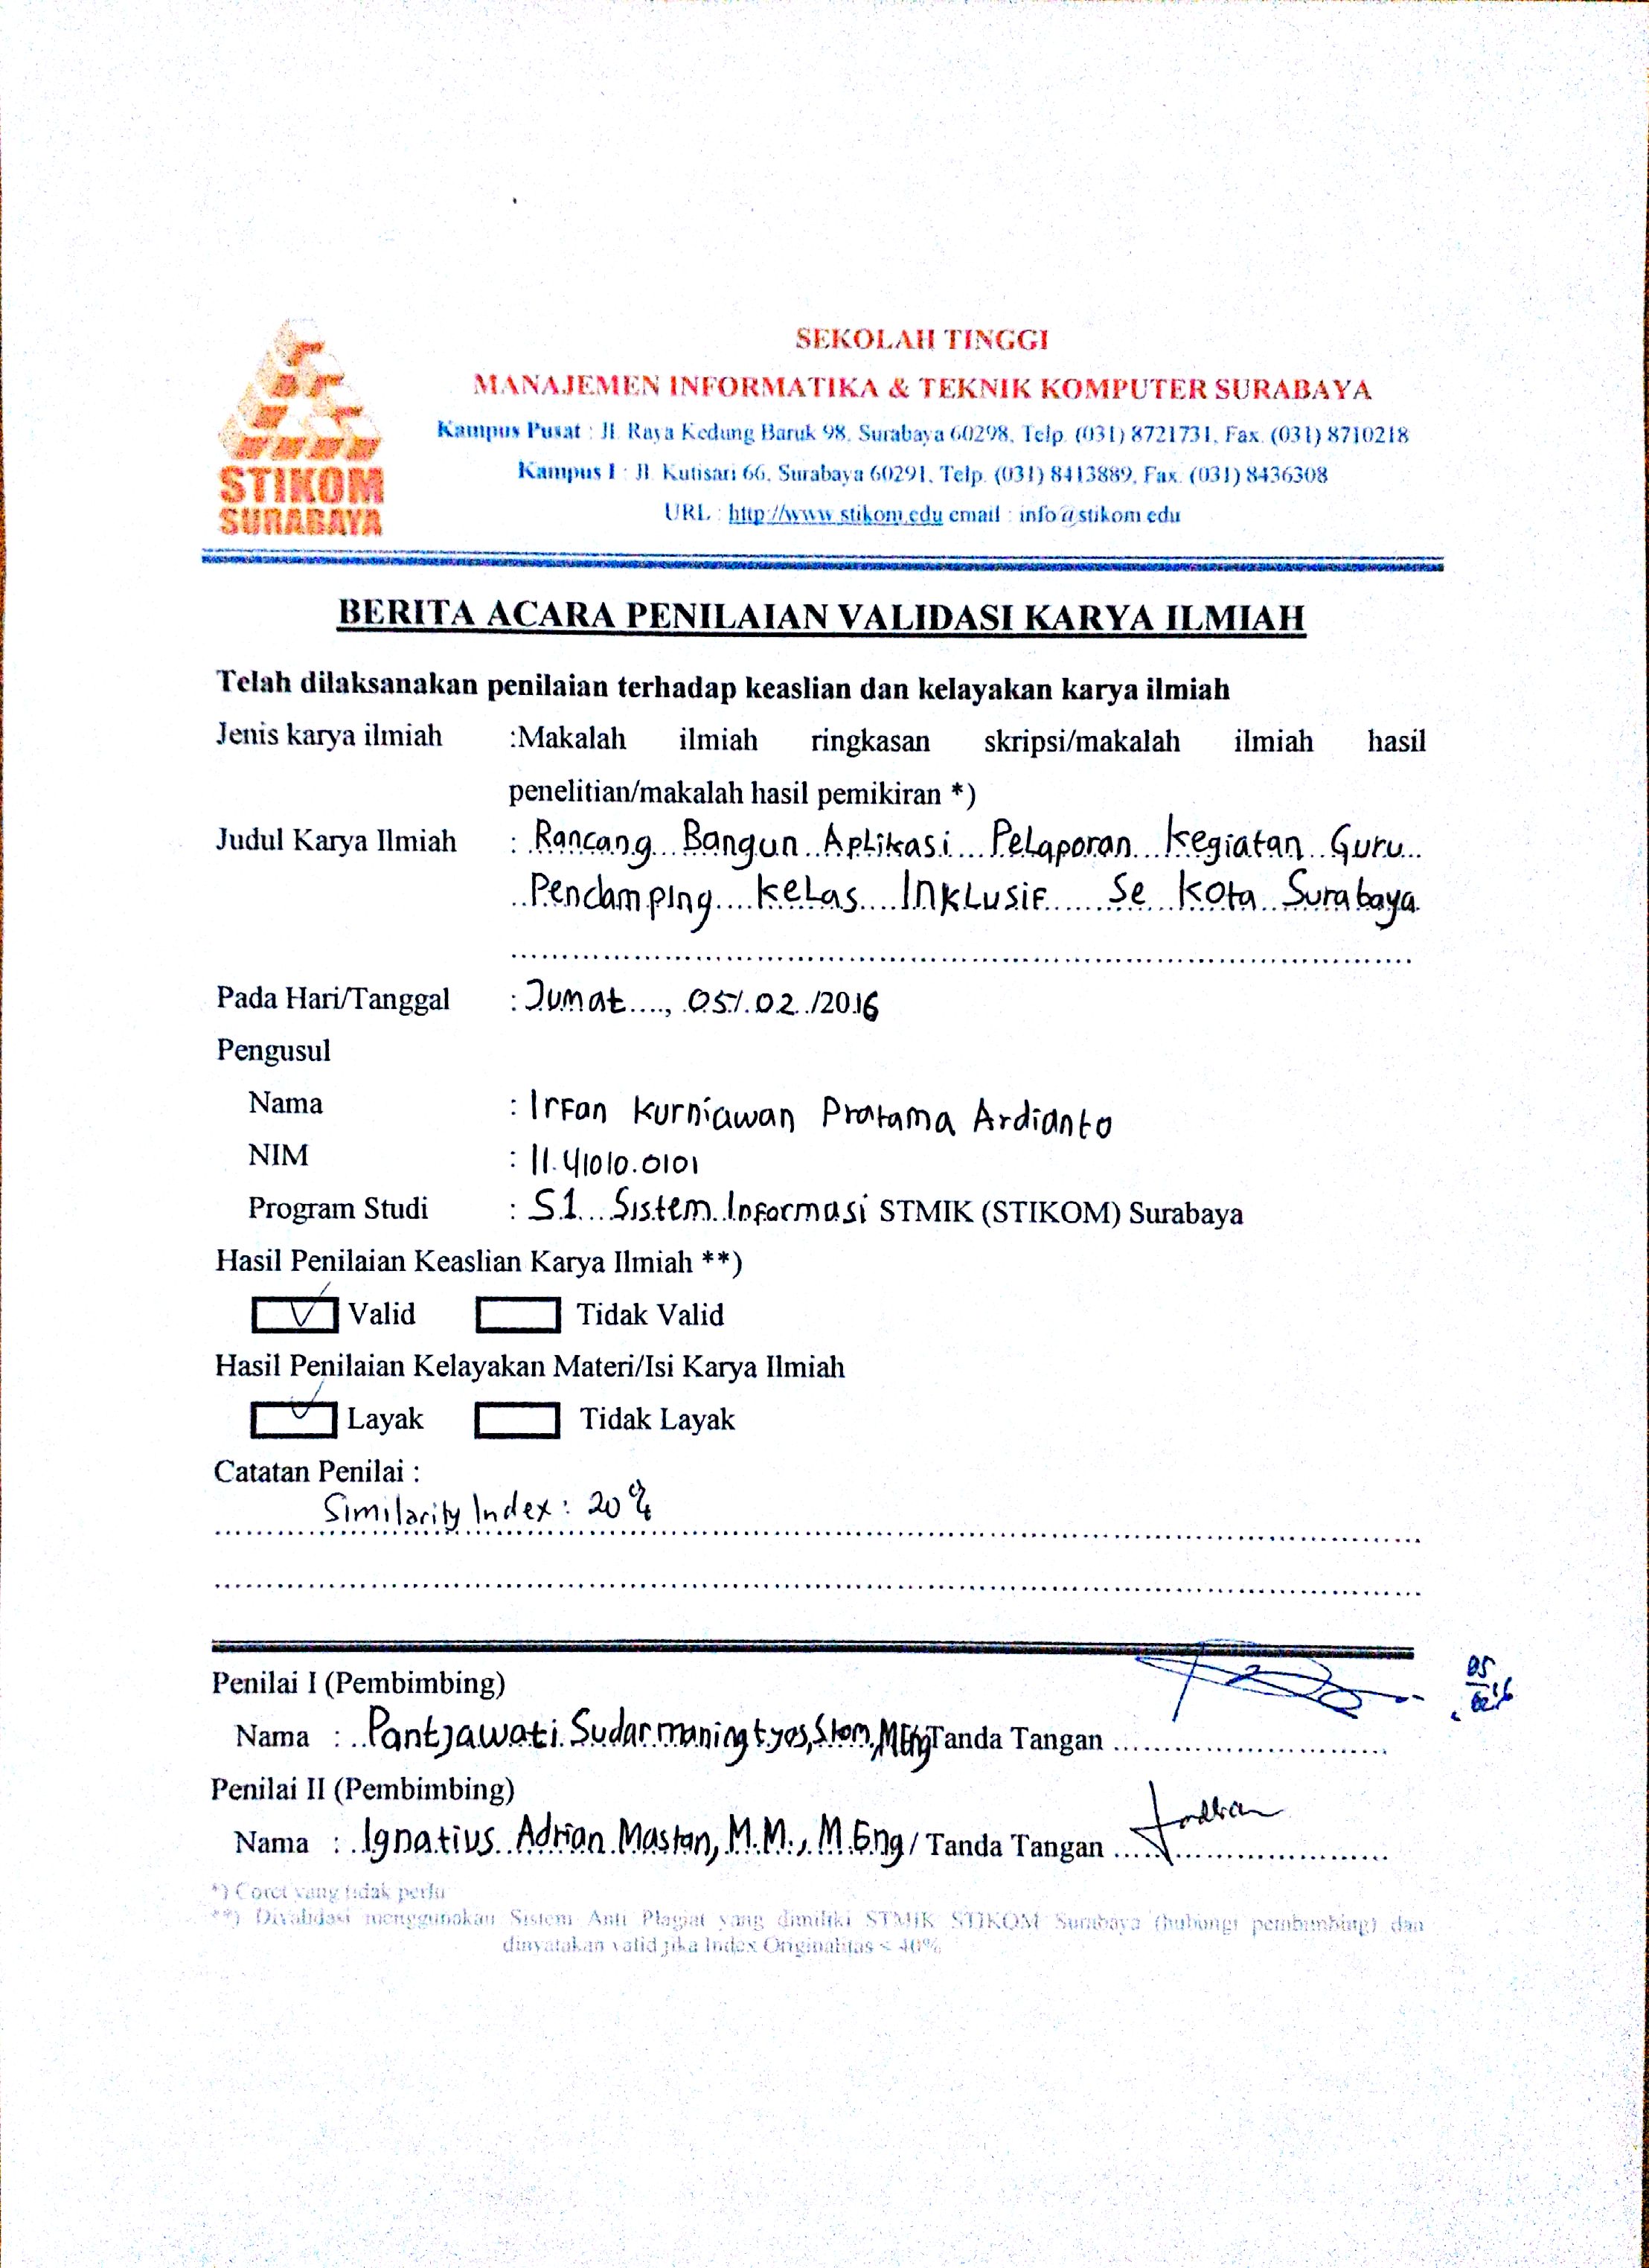 STIKOM
SURABAYA
SEKOLAH TINGGI
MANAJEMEN INFORMATIKA & TEKNIK KOMPUTER SURABAYA
Kampus Pusat : Jl. Raya Kedung Baruk 98, Surabaya 60298, Telp. (031) 8721731, Fax. (031) 8710218
Kampus I : Jl. Kutisari 66, Surabaya 60291, Telp. (031) 8413889, Fax. (031) 8436308
URL : http://www.stikom.edu email : info@stikom.edu
BERITA ACARA PENILAIAN VALIDASI KARYA ILMIAH
Telah dilaksanakan penilaian terhadap keaslian dan kelayakan karya ilmiah
Jenis karya ilmiah :Makalah ilmiah ringkasan skripsi/makalah ilmiah hasil
penelitian/makalah hasil pemikiran *)
Judul Karya Ilmiah : Rancang Bangun Aplikasi Pelaporan Kegiatan Guru
Pendamping Kelas Inklusif Se Kota Surabaya
Pada Hari/Tanggal : Jumat...., 05/.02./2016
Pengusul
Nama : Irfan Kurniawan Pratama Ardianto
NIM : 11.41010.0101
Program Studi : S1 Sistem Informasi STMIK (STIKOM) Surabaya
Hasil Penilaian Keaslian Karya Ilmiah **)
Valid Tidak Valid
Hasil Penilaian Kelayakan Materi/Isi Karya Ilmiah
Layak Tidak Layak
Catatan Penilai :
Similarity Index : 20%
Penilai I (Pembimbing)
05/02'16
Nama : Pantjawati Sudarmaningtyas, S.Kom, M.Eng Tanda Tangan
Penilai II (Pembimbing)
Nama : Ignatius Adrian Mastan, M.M., M.Eng / Tanda Tangan
*) Coret yang tidak perlu
**) Divalidasi menggunakan Sistem Anti Plagiat yang dimiliki STMIK STIKOM Surabaya (hubungi pembimbing) dan
dinyatakan valid jika Index Originalitas < 40%